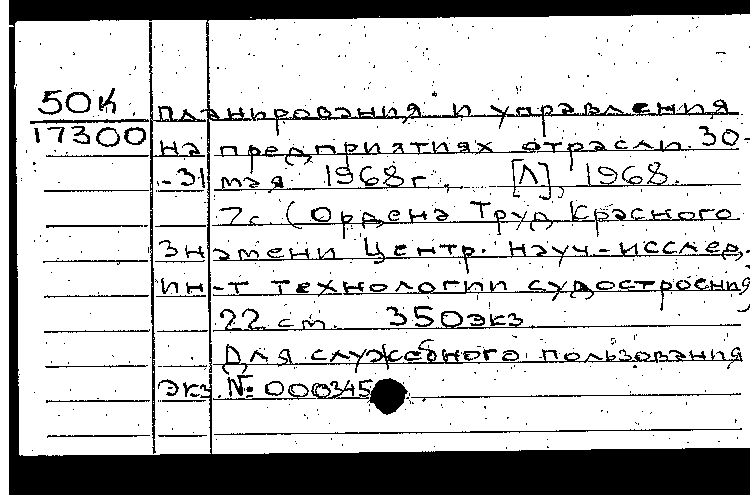 50К планирования и управления
17300 на предприятиях отрасли. 30-
-31 мая 1968г., [Л], 1968.
7с. (Ордена Труд. Красного
Знамени Центр. науч.-исслед.
ин-т технологии судостроения)
22 см. 350экз
Для служебного пользования
Экз. № 000345